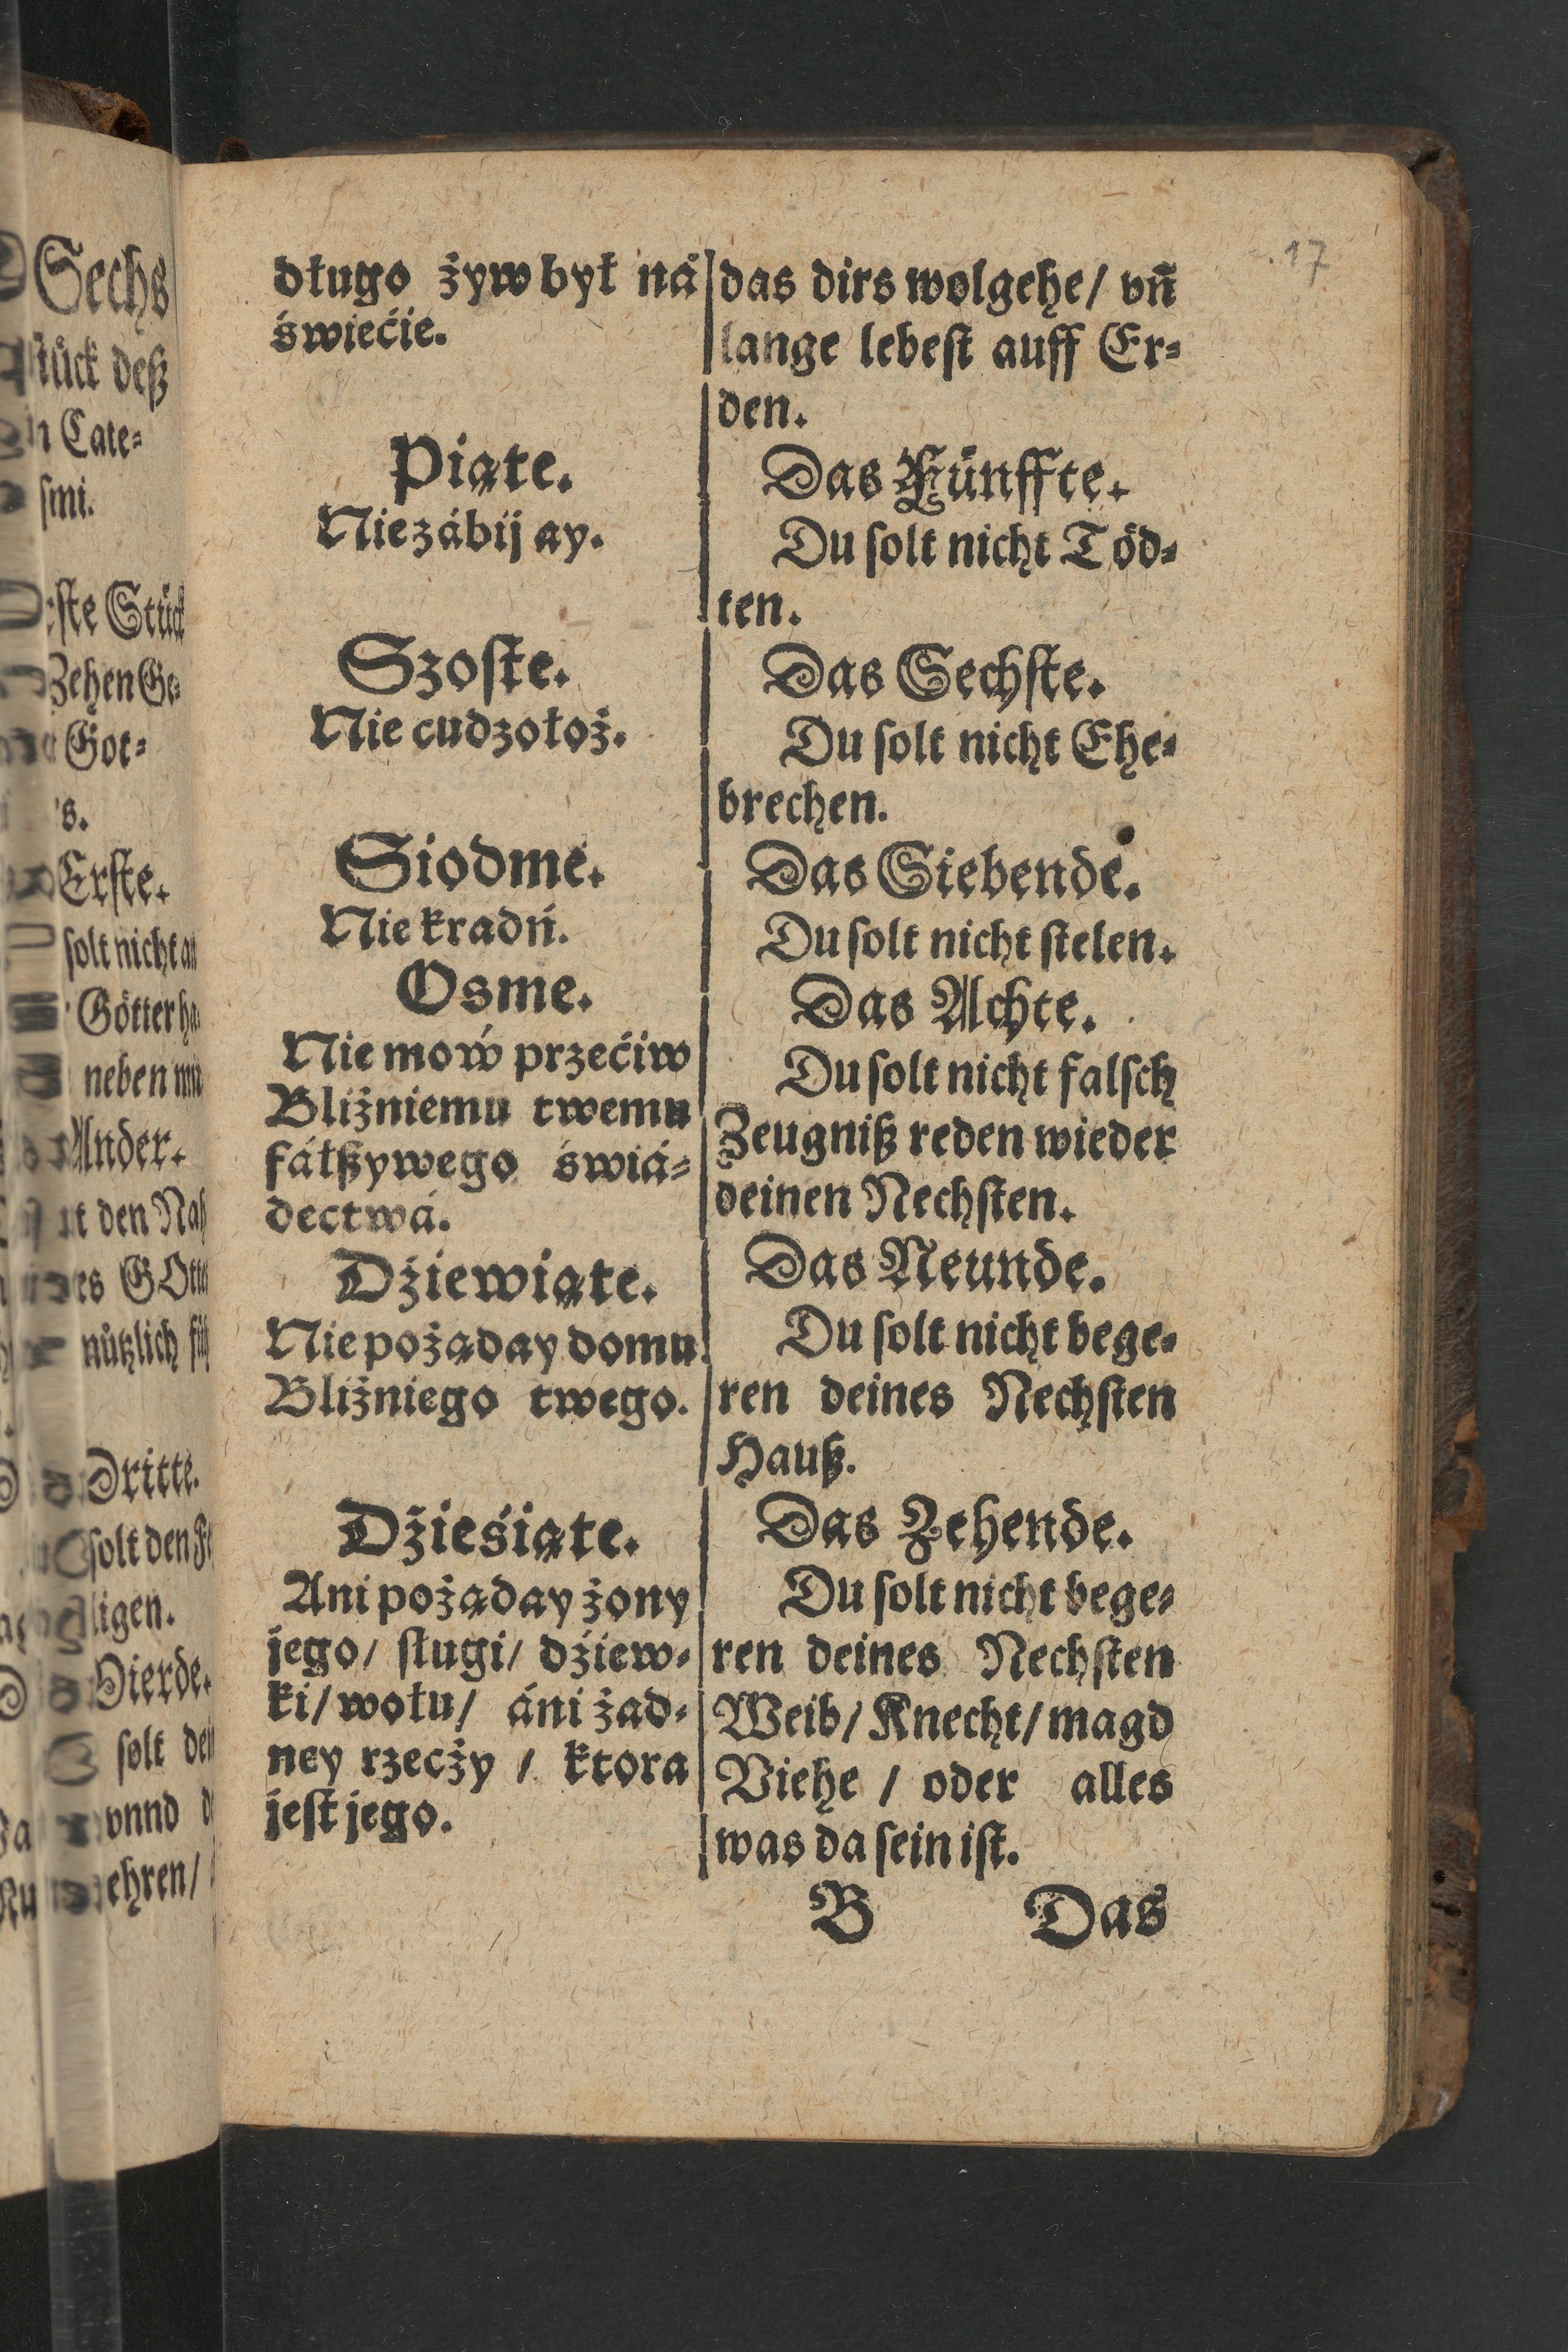 17
długo żyw był ná
świećie.
Piąte.
Nie zábij ay.
Szoſte.
Nie cudzołoż.
Siodmé.
Nie kradń.
Osme.
Nie moẃ przećiw
Bliźniemu twemu
fáłßywego świá⸗
dectwá.
Dźiewiąte.
Nie pożąday domu
Bliźniego twego.
Dźieśiąte.
Ani pożąday żony
jego/ ſługi/ dźiew⸗
ki/ wołu/ áni żad⸗
ney rzecży / ktora
jeſt jego.
das dirs wolgehe/ vn̄
lange lebeſt auff Er⸗
den.
Das Fünffte.
Du ſolt nicht Töd⸗
ten.
Das Sechſte.
Du ſolt nicht Ehe⸗
brechen.
Das Siebende.
Du ſolt nicht ſtelen.
Das Achte.
Du ſolt nicht falſch
Zeugniß reden wieder
deinen Nechſten.
Das Neunde.
Du ſolt nicht bege⸗
ren deines Nechſten
Hauß.
Das Zehende.
Du ſolt nicht bege⸗
ren deines Nechſten
Weib/ Knecht/ magd
Viehe / oder alles
was da ſein iſt.
B Das